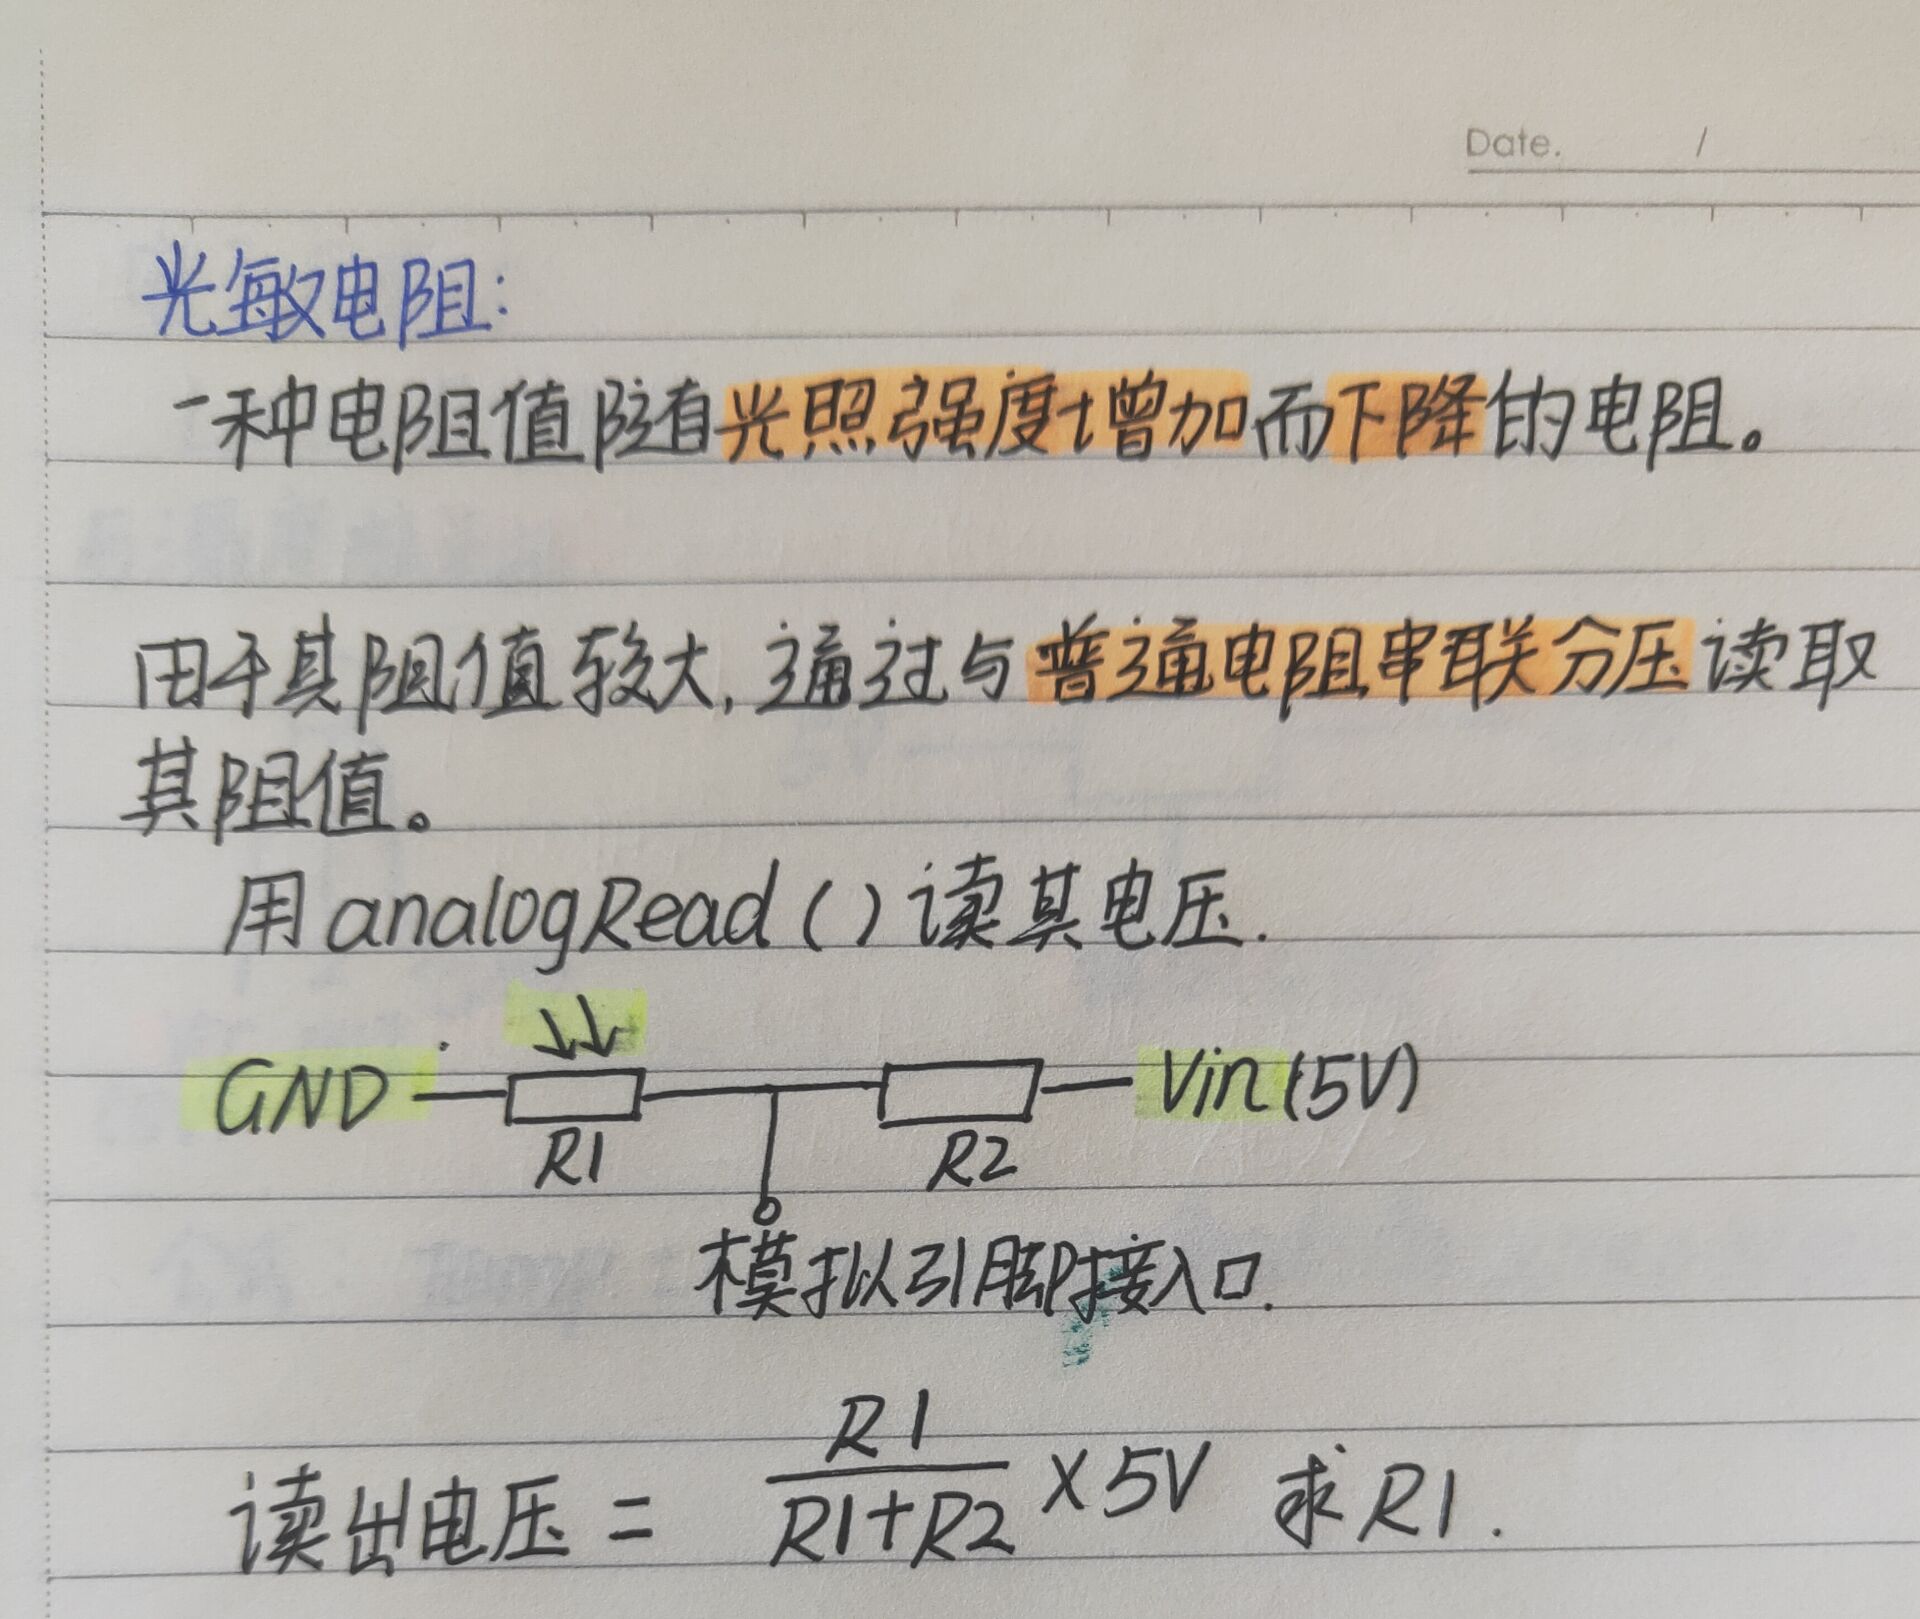 Date. /
光敏电阻:
一种电阻值随着光照强度增加而下降的电阻。
由于其阻值较大,通过与普通电阻串联分压读取
其阻值。
用analogRead()读其电压.
GND
Vin(5V)
R1
R2
模拟引脚接入口.
读出电压= R1/(R1+R2) ×5V 求R1.